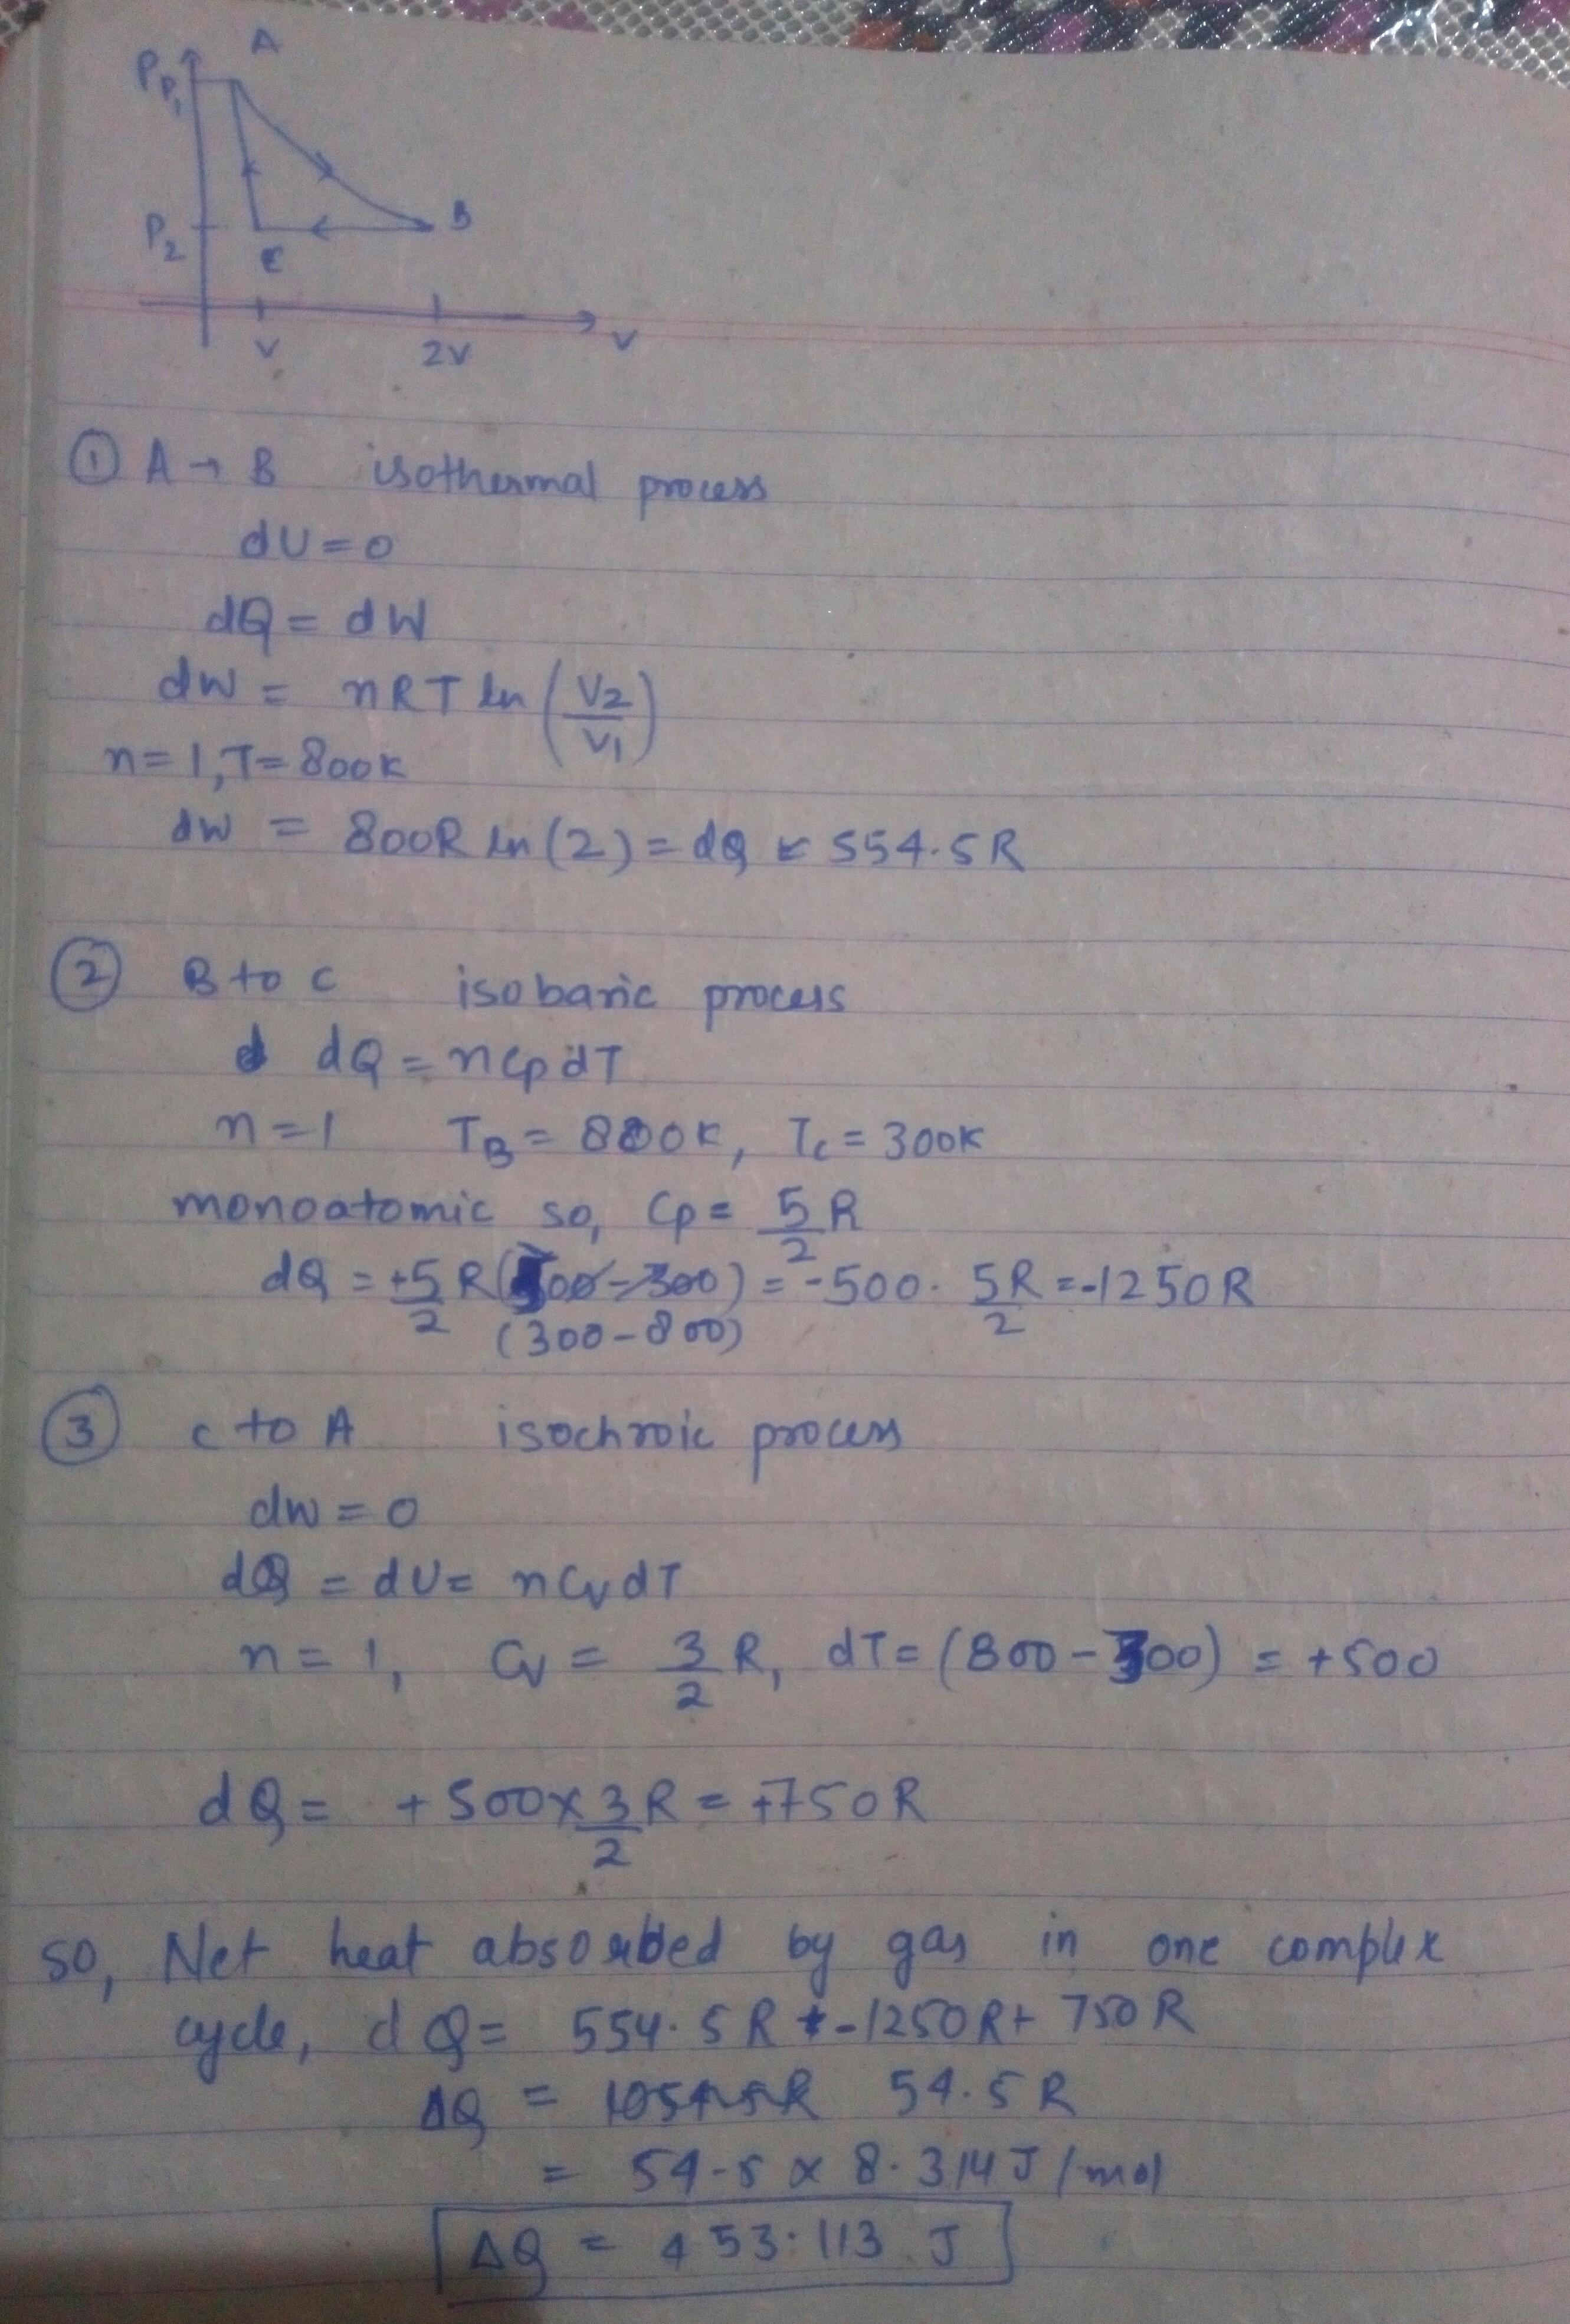 P
P₁
A
P₂
B
C
V
2V
V
① A → B isothermal process
dU = 0
dQ = dW
dW = nRT ln (V₂/V₁)
n = 1, T = 800K
dW = 800R ln (2) = dQ = 554.5R
② B to C isobaric process
dQ = nCp dT
n = 1 T_B = 800K, T_C = 300K
monoatomic so, Cp = 5/2 R
dQ = +5/2 R (300 - 800) = -500 . 5R/2 = -1250R
③ C to A isochroic process
dW = 0
dQ = dU = nCv dT
n = 1, Cv = 3/2 R, dT = (800 - 300) = +500
dQ = +500 × 3/2 R = +750R
so, Net heat absorbed by gas in one complex
cycle, dQ = 554.5R + -1250R + 750R
ΔQ = 54.5R
= 54.5 × 8.314 J/mol
ΔQ = 453.113 J